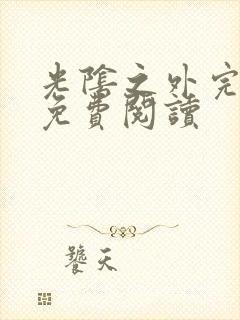 光陰之外完
免費閱讀
饕天